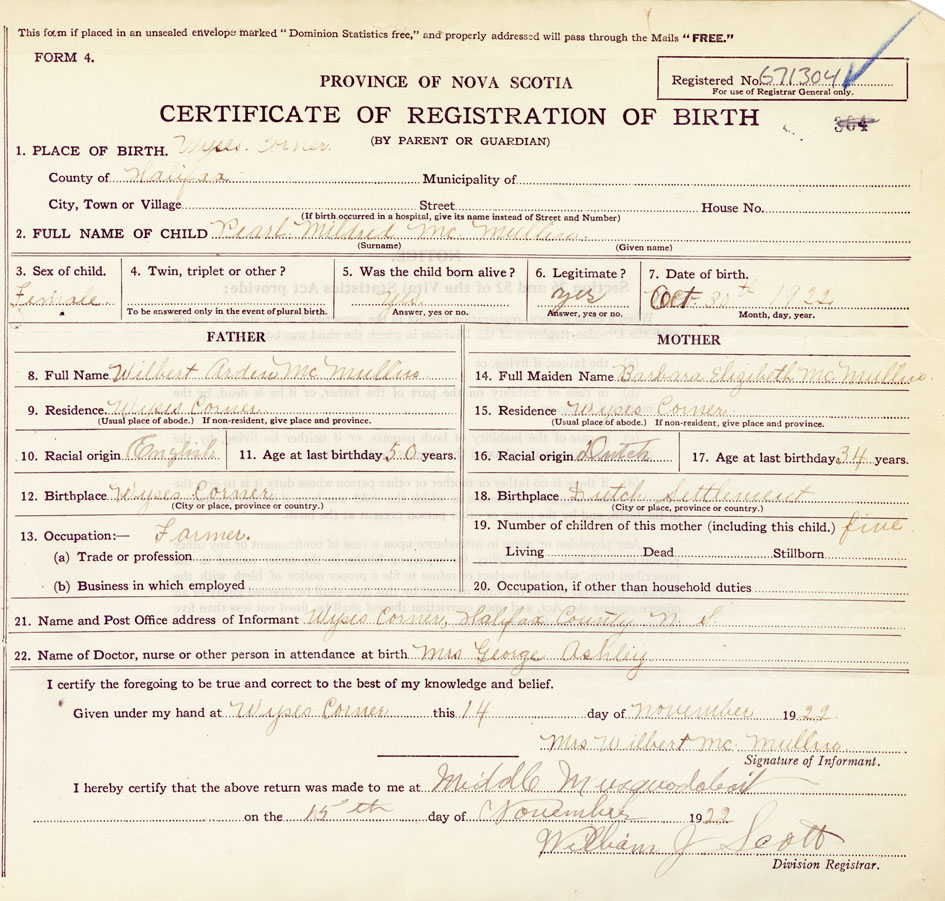 This form if placed in an unsealed envelope marked "Dominion Statistics free," and properly addressed will pass through the Mails "FREE."
FORM 4.
PROVINCE OF NOVA SCOTIA
Registered No. 671304
For use of Registrar General only.
CERTIFICATE OF REGISTRATION OF BIRTH
364
(BY PARENT OR GUARDIAN)
1. PLACE OF BIRTH. Wyses Corner
County of Halifax Municipality of
City, Town or Village Street House No.
(If birth occurred in a hospital, give its name instead of Street and Number)
2. FULL NAME OF CHILD Pearl Mildred Mc Mullin
(Surname) (Given name)
3. Sex of child. 4. Twin, triplet or other? 5. Was the child born alive? 6. Legitimate? 7. Date of birth.
Female Yes yes Oct 30th 1922
To be answered only in the event of plural birth. Answer, yes or no. Answer, yes or no. Month, day, year.
FATHER MOTHER
8. Full Name Wilbert Arden Mc Mullin 14. Full Maiden Name Barbara Elizibeth Mc Mullin
9. Residence. Wyses Corner 15. Residence Wyses Corner
(Usual place of abode.) If non-resident, give place and province. (Usual place of abode.) If non-resident, give place and province.
10. Racial origin English 11. Age at last birthday 50 years. 16. Racial origin Dutch 17. Age at last birthday 34 years.
12. Birthplace Wyses Corner 18. Birthplace Dutch Settlement
(City or place, province or country.) (City or place, province or country.)
13. Occupation:— Farmer. 19. Number of children of this mother (including this child.) five
(a) Trade or profession Living Dead Stillborn
(b) Business in which employed 20. Occupation, if other than household duties
21. Name and Post Office address of Informant Wyses Corner, Halifax County N. S.
22. Name of Doctor, nurse or other person in attendance at birth Mrs George Ashley
I certify the foregoing to be true and correct to the best of my knowledge and belief.
Given under my hand at Wyses Corner this 14 day of November 1922.
Mrs Wilbert Mc Mullin
Signature of Informant.
I hereby certify that the above return was made to me at Middle Musquodoboit
on the 15th day of November 1922
William J Scott
Division Registrar.